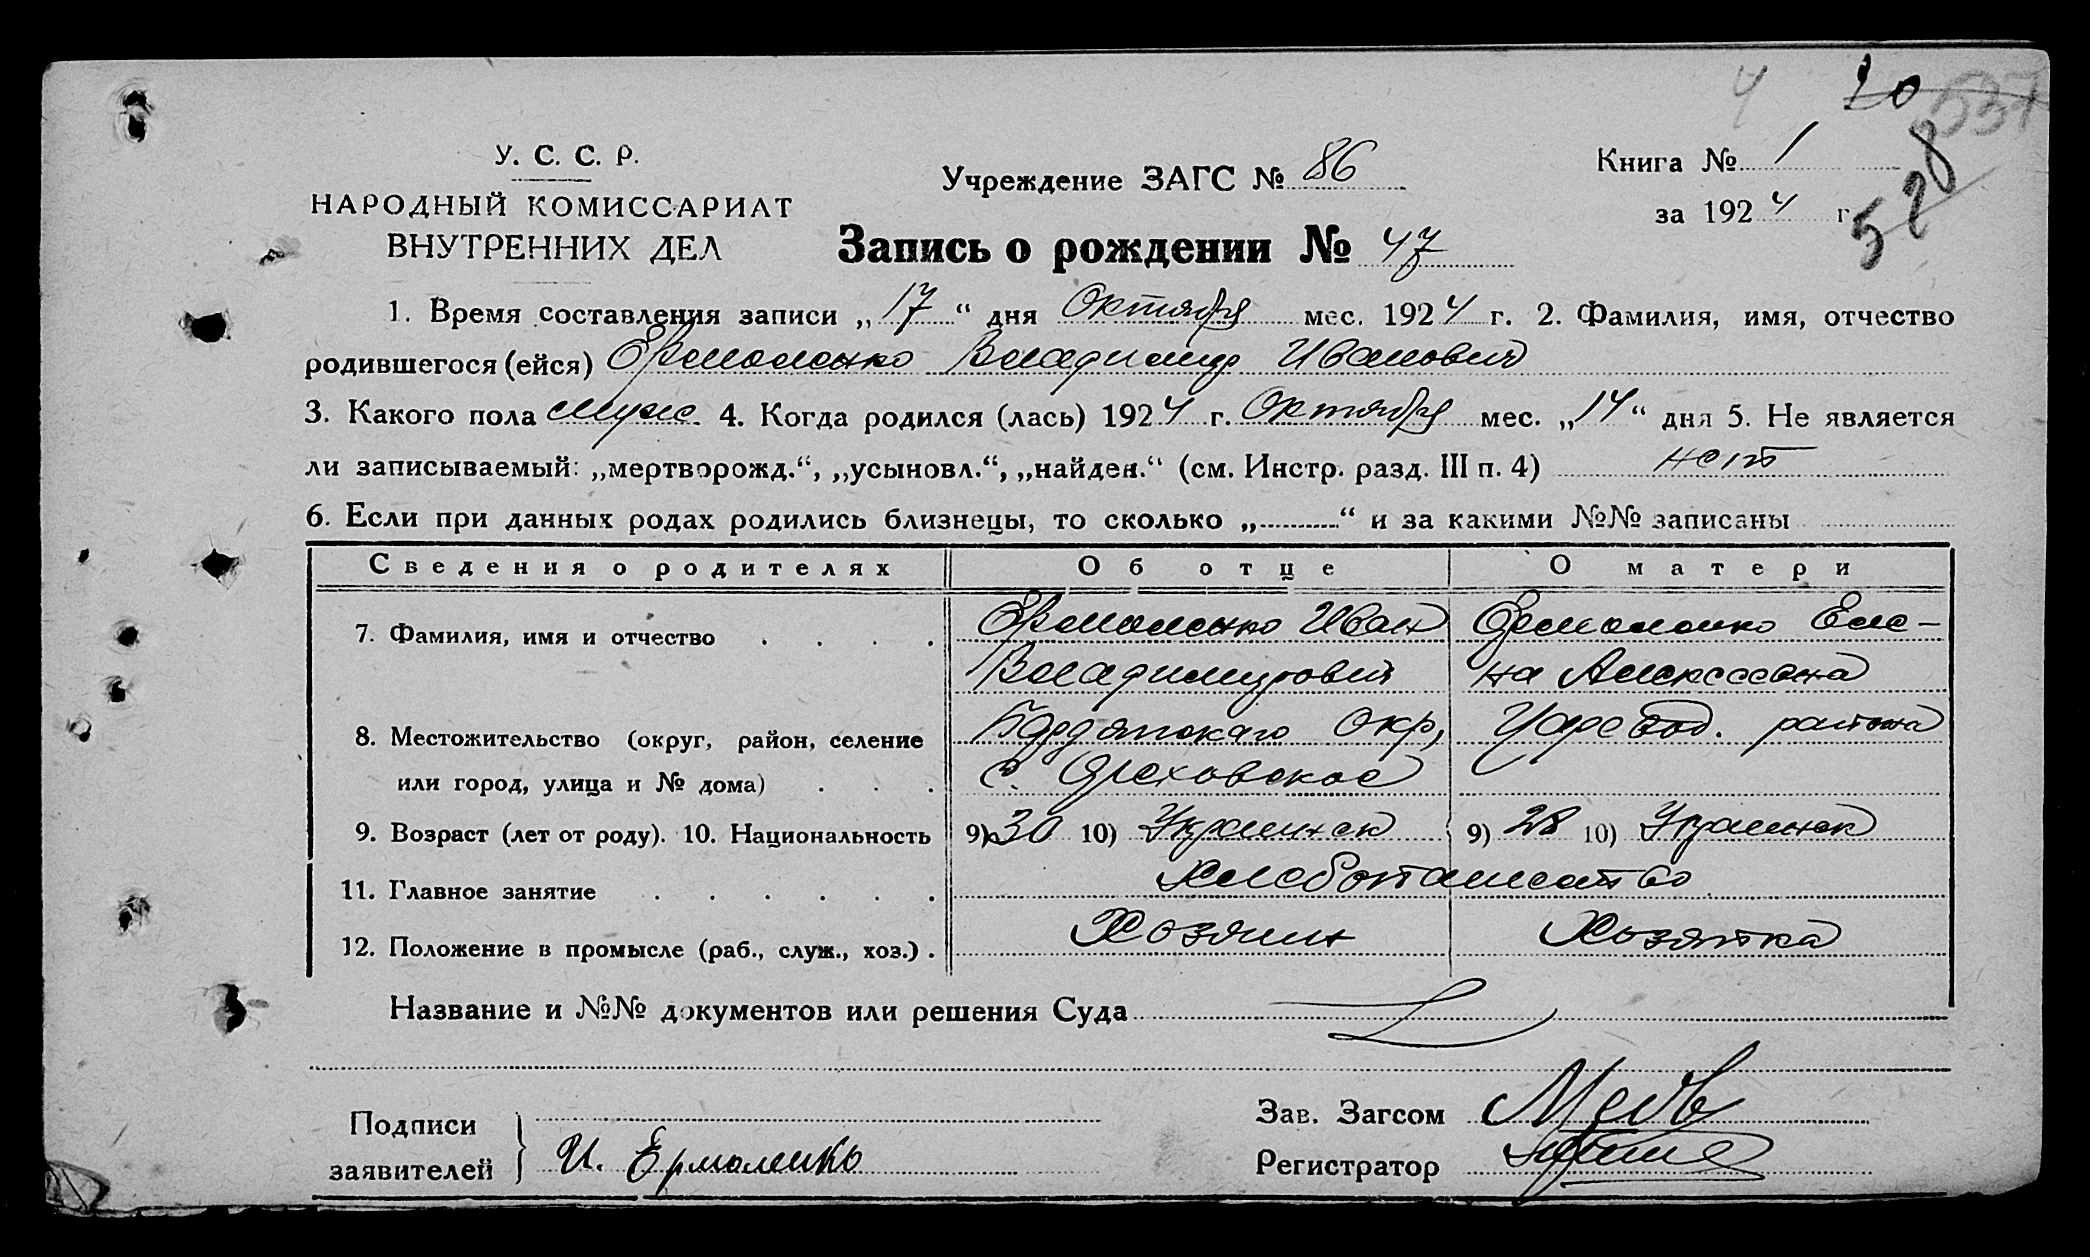 4 20 537
У. С. С. Р.
НАРОДНЫЙ КОМИССАРИАТ
ВНУТРЕННИХ ДЕЛ
Учреждение ЗАГС № 86
Книга № 1
за 1924 г.
528
Запись о рождении № 47
1. Время составления записи „17“ дня Октября мес. 1924 г. 2. Фамилия, имя, отчество
родившегося (ейся) Ермоленко Владимир Иванович
3. Какого пола муж. 4. Когда родился (лась) 1924 г. Октября мес. „14“ дня 5. Не является
ли записываемый: „мертворожд.“, „усыновл.“, „найден.“ (см. Инстр. разд. III п. 4) нет
6. Если при данных родах родились близнецы, то сколько „..........“ и за какими №№ записаны
Сведения о родителях Об отце О матери
7. Фамилия, имя и отчество Ермоленко Иван Ермоленко Еле-
Владимирович на Алексеевна
8. Местожительство (округ, район, селение Бердянскаго Окр, Царевод. района
или город, улица и № дома) с. Ореховское
9. Возраст (лет от роду). 10. Национальность 9) 30 10) Украинск 9) 28 10) Украинск
11. Главное занятие Хлебопашество
12. Положение в промысле (раб., служ., хоз.) Хозяин Хозяйка
Название и №№ документов или решения Суда
Подписи
заявителей
И. Ермоленко
Зав. Загсом
Регистратор